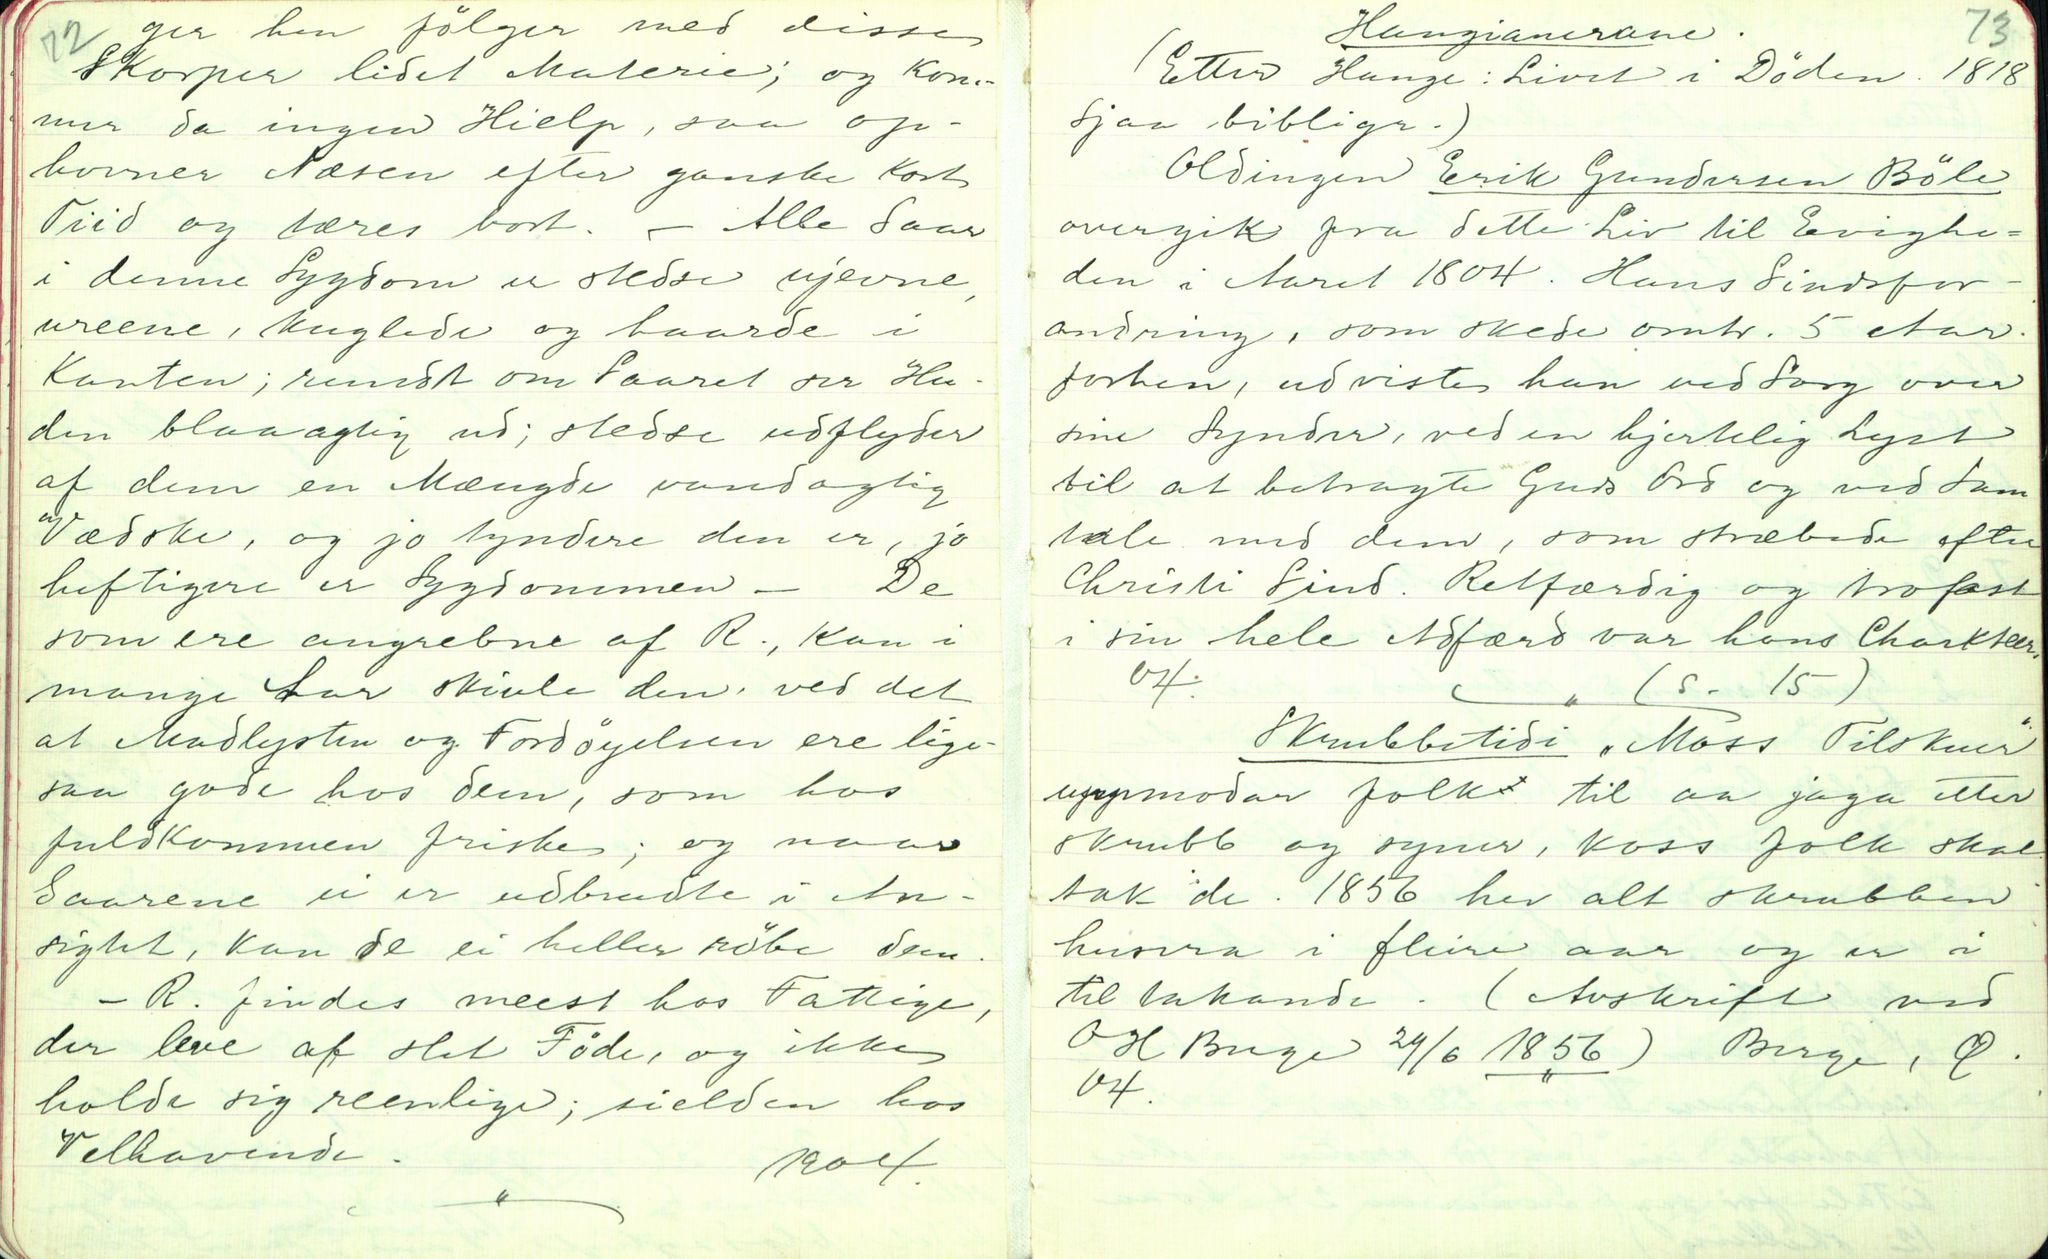 72
ger hen fölger med disse
Skorper lidet Materie; og kom-
mer da ingen Hielp, saa op-
hovner Næsen efter ganske kort
Tiid og tæres bort. — Alle Saar
i denne Sygdom er stedse ujevne,
ureene, kuglede og haarde i
Kanten; rundt om Saaret ser Hu-
den blaaagtig ud; stedse udflyder
af dem en Mængde vandagtig
Vædske, og jo tyndere den er, jo
heftigere er Sygdommen — De
som ere angrebne af R., kan i
mange Aar skiule den, ved det
at Madlysten og Fordöyelsen ere lige-
saa gode hos dem, som hos
fuldkommen friske; og naar
Saarene ei er udbrudte i An-
sight, kan de ei heller röbe dem.
— R. findes meest hos Fattige,
der leve af slet Föde, og ikke
holde sig reenlige; sielden hos
Velhavende. 1904.
73
Haugianerane.
(Etter Hauge: Livet i Döden. 1818
sjaa bibliogr.)
Oldingen Erik Gundersen Böle
overgik fra dette Liv til Evighe=
den i Aaret 1804. Hans Sindsfor-
andring, som skede omtr. 5 Aar
forhen, udviste han ved Sorg over
sine Synder, ved en hjertelig Lyst
til at betragte Guds Ord og ved Sam
tale med dem, som stræbede efter
Christi Sind. Retfærdig og trofast
i sin hele Adfærd var hans Charkteer.
04. (S. 15)
Skrubbetidi „Moss Tilskuer"
uppmodar folk til aa jaga etter
skrubb og syner, koss folk skal
tak de. 1856 hev alt skrubben
husera i fleire aar og er i
tiltakande. (Avskrift ved
OH Berge 29/6 1856) Berge, Ø.
04.